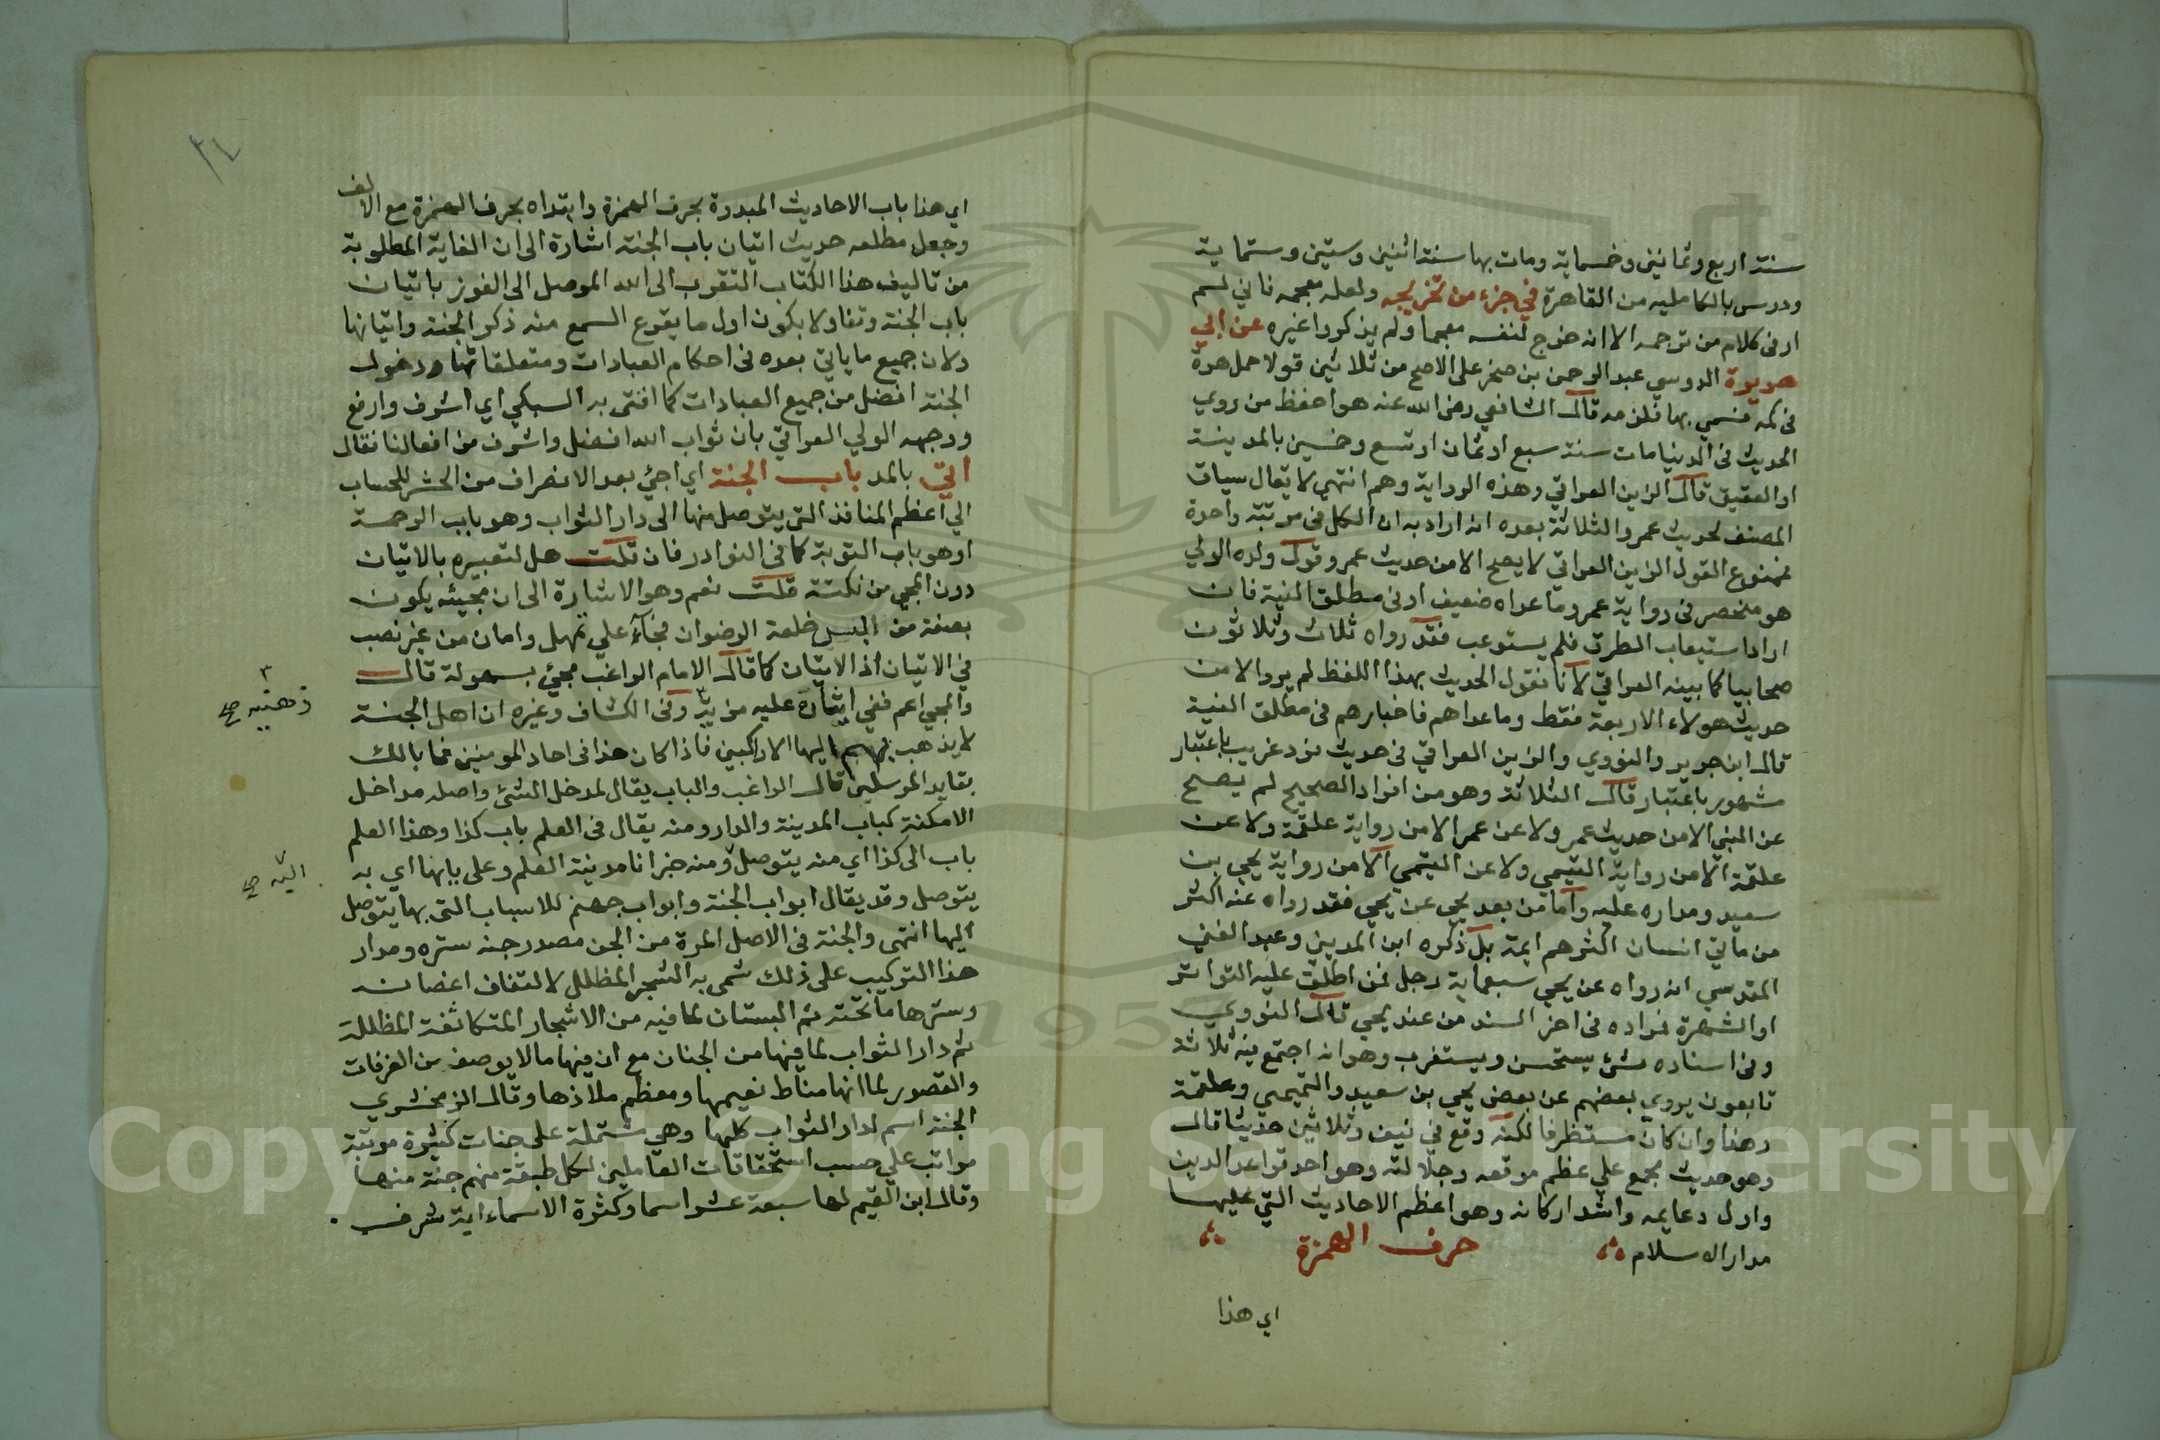 سنة اربع وثمانين وخسماية ومات بها سنة اثنين وستين وستماية
ودرس بالكامليه من القاهرة في جزء من تخريجه ولعله معجمه فاني لم
ار فى كلام من ترجمه الا انه خرج لنفسه معجما ولم يذكروا غيره عن ابي
هريرة الدوسي عبد الرحمن بن صخر على الاصح من ثلاثين قولا حمل هرة
فى كمه فسمي بها فلزمه قال الشافعي رضى الله عنه هو احفظ من روي
الحديث فى الدنيا مات سنة سبع او ثمان او تسع وخمسين بالمدينة
او العقيق قال الزين العراقي وهذه الرواية وهم انتهى لا يقال سياق
المصنف لحديث عمر والثلاثة بعده انه اراد به ان الكل فى مرتبة واحدة
فممنوع القول الزين العراقي لا يصح الا من حديث عمر وقول ولده الولي
هو منحصر فى رواية عمر وما عداه ضعيف او فى مطلق النية فان
اراد استيعاب الطرق فلم يستوعب فقد رواه ثلاث وثلاثون
صحابيا كما بينه العراقي لانا نقول الحديث بهذا اللفظ لم يرد الا من
حديث هولاء الاربعة فقط وما عداهم فاخبارهم فى مطلق النية
قال ابن جرير والنووي والزين العراقي فى حديث فرد غريب باعتبار
مشهور باعتبار قال الثلاثة وهو من افراد الصحيح لم يصح
عن النبي الا من حديث عمر ولا عن عمر الا من رواية علقمة ولا عن
علقمة الا من رواية التيمي ولا عن التيمي الا من رواية يحيي بن
سعيد ومداره عليه واما من بعد يحيي عن يحيي فقد رواه عنه اكثر
من مأتي انسان اكثرهم ايمة بل ذكره ابن المديني وعبد الغني
المقدسي انه رواه عن يحيي سبعماية رجل فمن اطلق عليه التواتر
او الشهرة فمراده فى اخر السند من عند يحيي قال النووي
وفى اسناده شئ يستحسن ويستغرب وهو انه اجتمع فيه ثلاثه
تابعون يروي بعضهم عن بعض يحيي بن سعيد والتيمي وعلقمة
وهذا وان كان مستظرفا لكنه وقع في نيف وثلاثين حديثا قال
وهو حديث مجمع علي عظم موقعه وجلالته وهو احد قواعد الدين
واول دعايمه واشد اركانه وهو اعظم الاحاديث التي عليها
مدار الاسلام حرف الهمزة
اي هذا
٣٤
اي هذا باب الاحاديث المبدوة بحرف الهمزة وابتداه بحرف الهمزة مع الالف
وجعل مطلعه حديث اتيان باب الجنة اشارة الى ان الغاية المطلوبة
من تاليف هذا الكتاب التقرب الى الله الموصل الى الفوز باتيان
باب الجنة وتفاولا بكون اول ما يقرع السمع منه ذكر الجنة واتيانها
ولان جميع ما ياتي بعده فى احكام العبادات ومتعلقاتها ودخول
الجنة افضل من جميع العبادات كما افتى به السبكي اي اشرف وارفع
ووجهه الولي العراقي بان ثواب الله افضل واشرف من افعالنا فقال
اتي بالمد باب الجنة اي اجئ بعد الانصراف من الحشر للحساب
الي اعظم المنافذ التي يتوصل منها الى دار الثواب وهو باب الرحمة
او هو باب التوبة كما فى النوادر فان قلت هل لتعبيره بالاتيان
دون المجي من نكتة قلت نعم وهو الاشارة الى ان مجيئه يكون
بصفة من البس خلعة الرضوان فجآء علي تمهل وامان من غير نصب
في الاتيان اذ الاتيان كما قال الامام الراغب مجئ بسهولة قال
والمجي اعم ففي ايثاره عليه مزية وفى الكشاف وغيره ان اهل الجنة
لا يذهب بهم اليها الا راكبين فاذا كان هذا فى احاد المومنين فما بالك
بقايد المرسلين قال الراغب والباب يقال لمدخل الشئ واصله مداخل
الامكنة كباب المدينة والدار ومنه يقال فى العلم باب كذا وهذا العلم
باب الى كذا اي منه يتوصل ومنه خبر انا مدينة العلم وعلى بابها اي به
يتوصل وقد يقال ابواب الجنة وابواب جهنم للاسباب التي بها يتوصل
اليها انتهى والجنة فى الاصل المرة من الجن مصدر جنه ستره ومدار
هذا التركيب على ذلك سمى به الشجر المظلل لالتفاف اغصانه
وسترها ما تحته ثم البستان لما فيه من الاشجار المتكاثفة المظللة
ثم دار الثواب لما فيها من الجنان مع ان فيها مالا يوصف من الغرفات
والقصور لما انها مناط نعيمها ومعظم ملاذها وقال الزمخشري
الجنة اسم لدار الثواب كلها وهي مشتملة على جنات كثيرة مرتبة
مراتب علي حسب استحقاقات العاملين لكل طبقة منهم جنة منها
وقال ابن القيم لها سبعة عشر اسما وكثرة الاسماء اية شرف
اليه صح